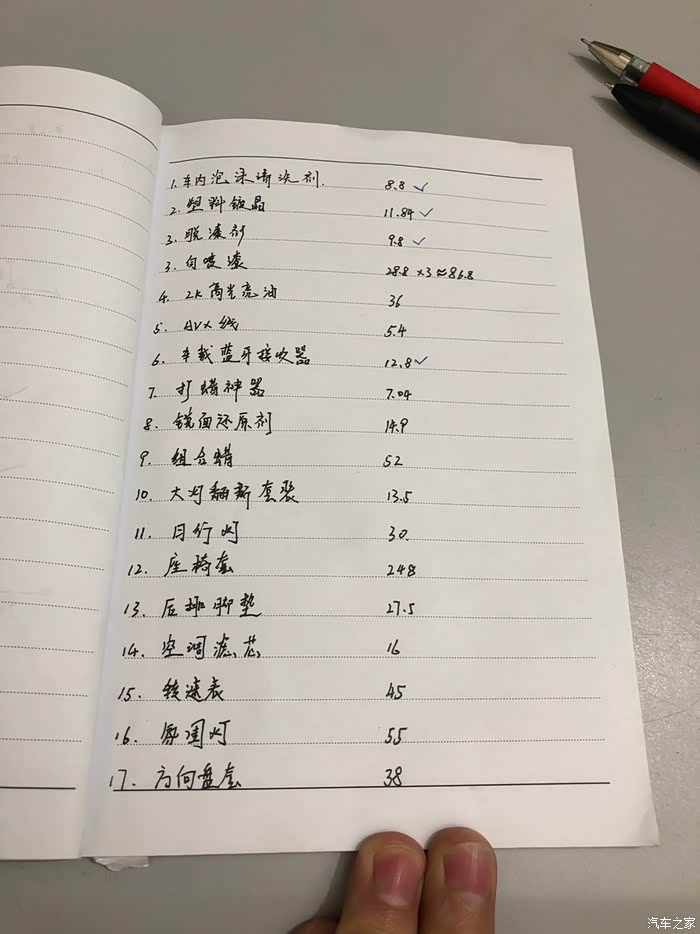 1. 车内泡沫清洗剂. 8.8 ✓
2. 塑料镀晶 11.84 ✓
3. 脱漆剂 9.8 ✓
3. 自喷漆 28.8 ×3 ≈ 86.8
4. 2K高光亮油 36
5. AUX线 5.4
6. 车载蓝牙接收器 12.8 ✓
7. 打蜡神器 7.04
8. 镜面还原剂 14.9
9. 组合蜡 52
10. 大灯翻新套装 13.5
11. 日行灯 30.
12. 座椅套 248
13. 后排脚垫 27.5
14. 空调滤芯 16
15. 转速表 45
16. 氛围灯 55
17. 方向盘套 38
汽车之家